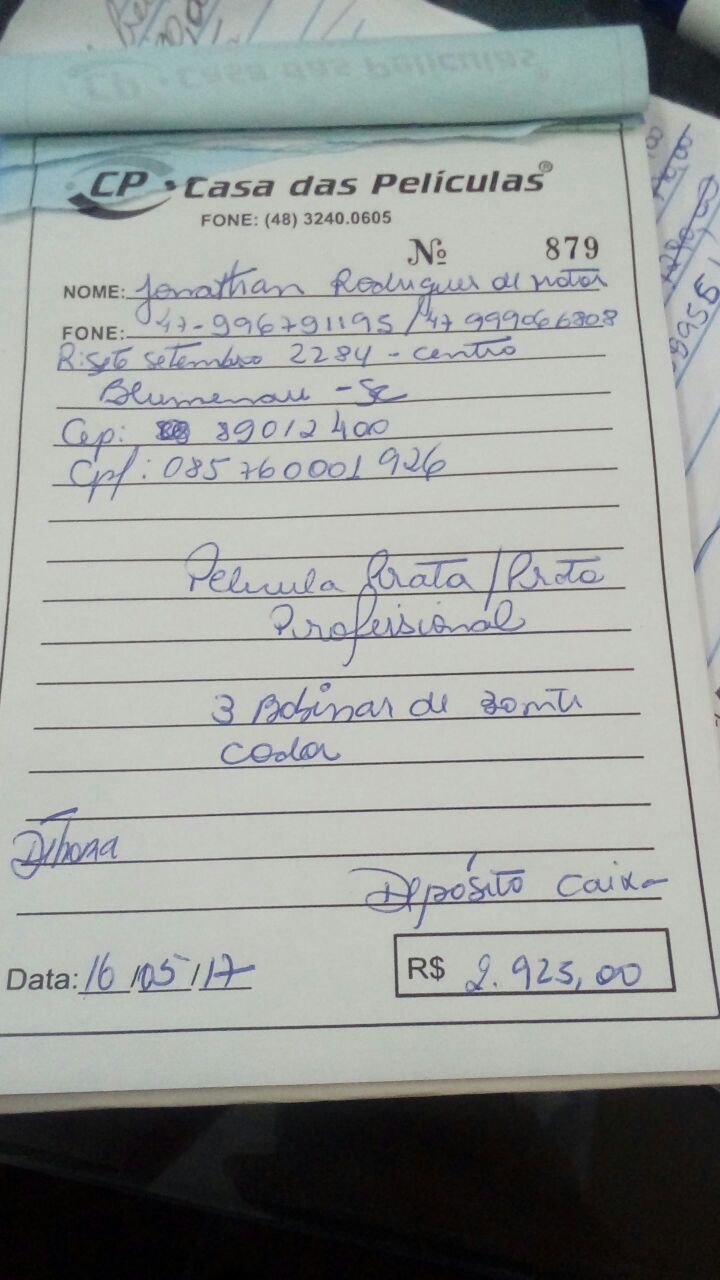 CP Casa das Películas®
FONE: (48) 3240.0605
Nº 879
NOME: Jonathan Rodrigues de Matos
FONE: 47-996791195 / 47 999066808
R: sete setembro 2284 - centro
Blumenau - SC
Cep: 89012400
Cpf: 085760001926
Pelicula Prata / Preta
Profissional
3 Bobinas de 30mts
cada
Débora
Depósito Caixa
Data: 16/05/17
R$ 2.925,00